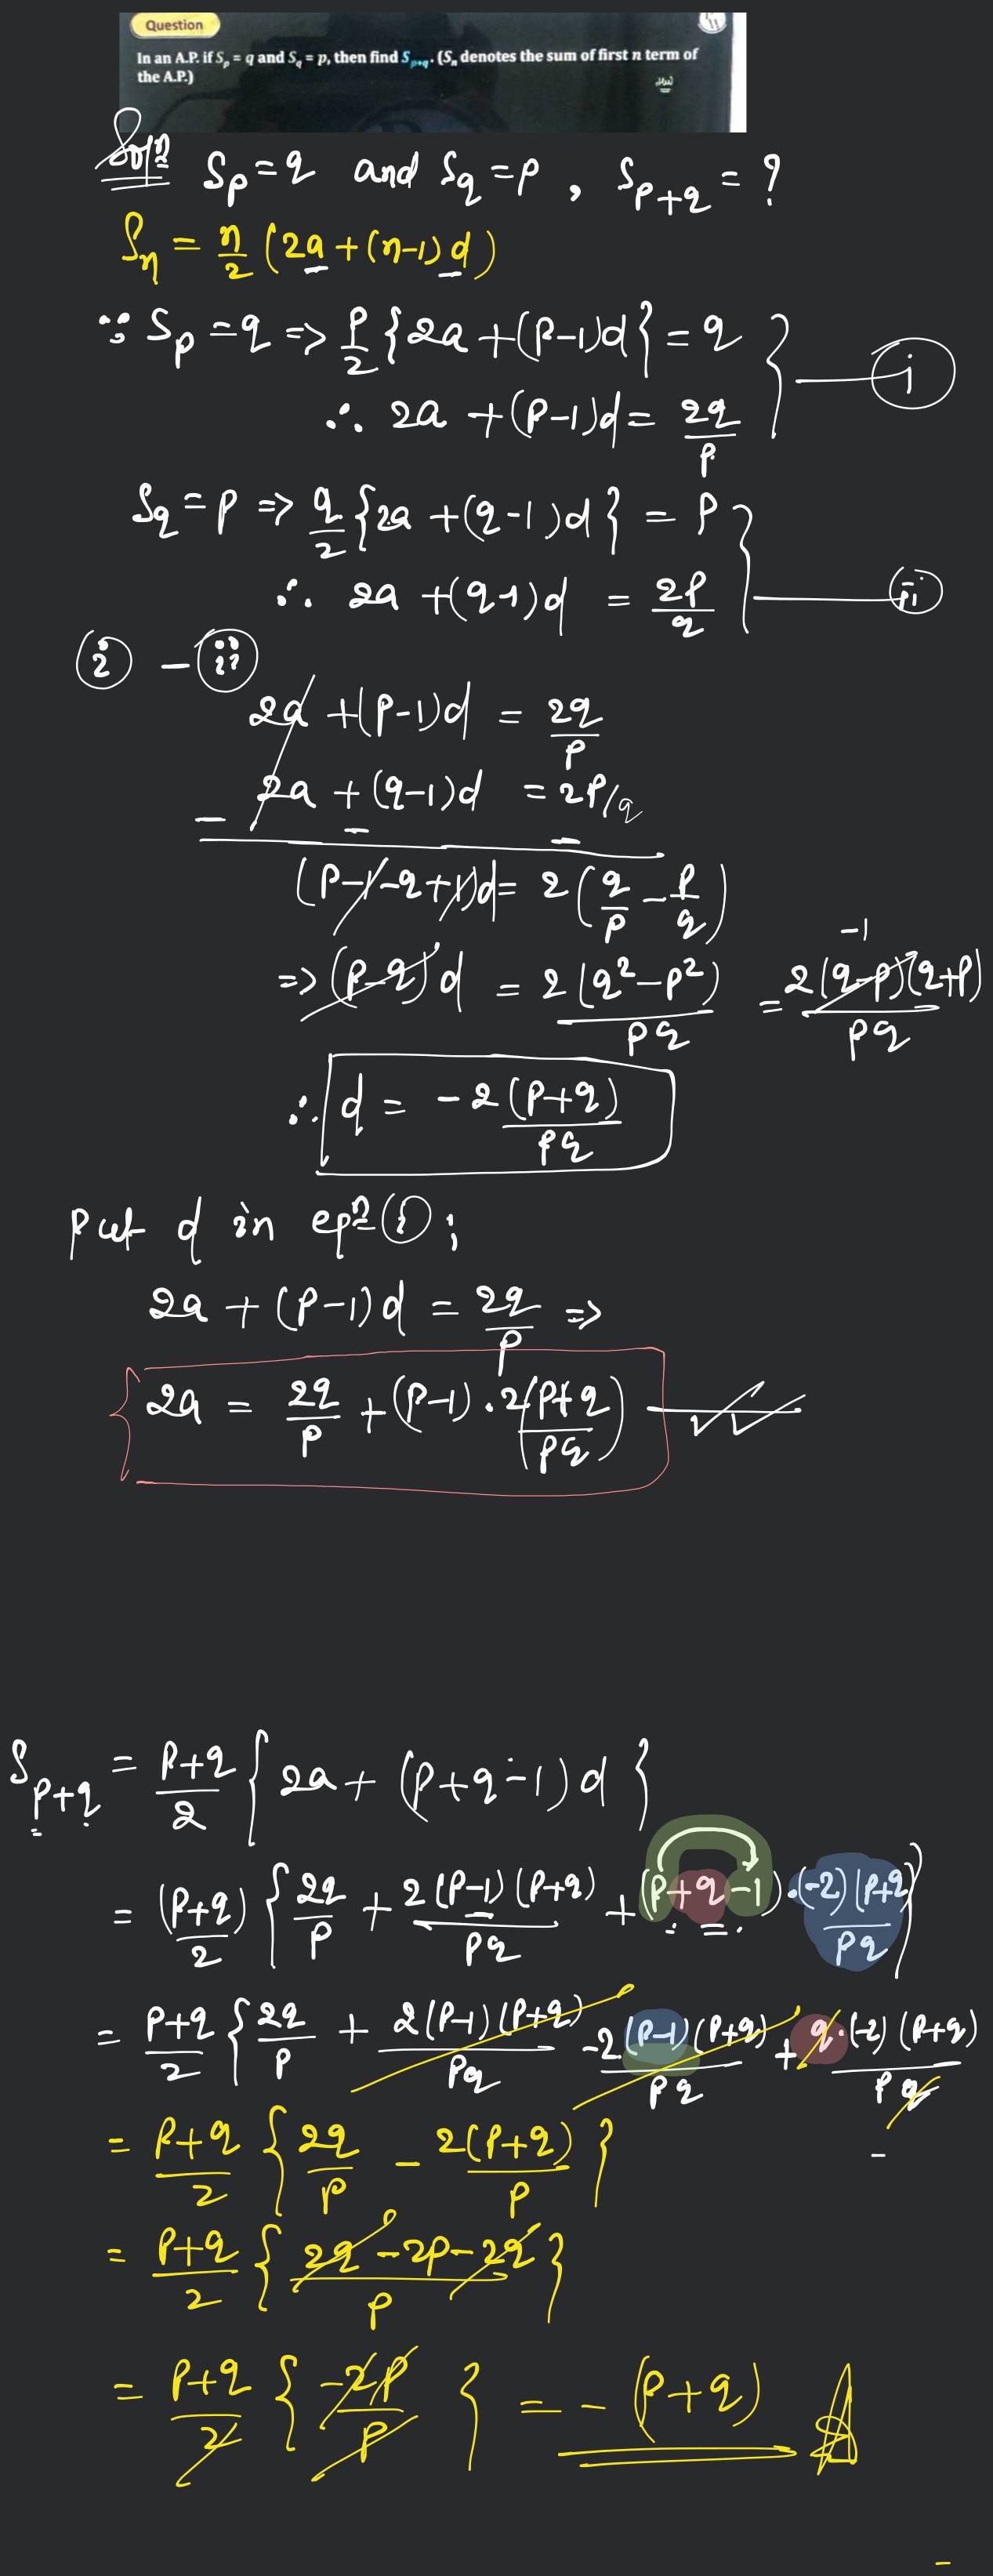 Question
In an A.P. if S_p = q and S_q = p, then find S_{p+q}. (S_n denotes the sum of first n term of
the A.P.)
Solⁿ S_p = q and S_q = p , S_{p+q} = ?
S_n = n/2 (2a + (n-1)d)
∵ S_p = q => p/2 {2a + (p-1)d} = q
i
∴ 2a + (p-1)d = 2q/p
S_q = p => q/2 {2a + (q-1)d} = p
ii
∴ 2a + (q-1)d = 2p/q
i - ii
2a + (p-1)d = 2q/p
2a + (q-1)d = 2p/q
- - -
(p-1-q+1)d = 2(q/p - p/q)
-1
=> (p-q)d = 2(q²-p²)/pq = 2(q-p)(q+p)/pq
∴ d = -2(p+q)/pq
put d in eqⁿ (i);
2a + (p-1)d = 2q/p =>
2a = 2q/p + (p-1).2(p+q)/pq
S_{p+q} = p+q/2 {2a + (p+q-1)d}
= (p+q)/2 {2q/p + 2(p-1)(p+q)/pq + (p+q-1).(-2)(p+q)/pq}
= p+q/2 {2q/p + 2(p-1)(p+q)/pq -2(p-1)(p+q)/pq + q.(-2)(p+q)/pq
= p+q/2 {2q/p - 2(p+q)/p}
= p+q/2 {2q-2p-2q/p}
= p+q/2 {-2p/p} = -(p+q)